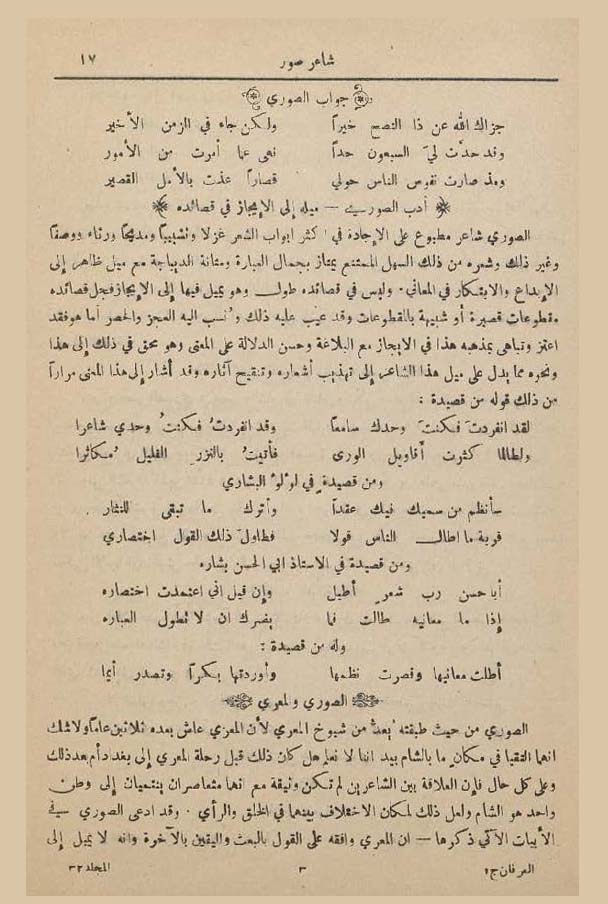 شاعر صور ١٧
جواب الصوري
جزاك الله عن ذا النصح خيراً ولكن جاء في الزمن الأخير
وقد حدَّت ليَ السبعون حداً نهى عما أمرت من الأمور
ومذ صارت نفوس الناس حولي قصاراً عذت بالأمل القصير
أدب الصوري — ميله إلى الإيجاز في قصائده
الصوري شاعر مطبوع على الإجادة في اكثر ابواب الشعر غزلا وتشبيباً ومديحاً ورثاء ووصفاً
وغير ذلك وشعره من ذلك السهل الممتنع يمتاز بجمال العبارة ومتانة الديباجة مع ميل ظاهر إلى
الإبداع والابتكار في المعاني. وليس في قصائده طول وهو يميل فيها إلى الإيجاز فجل قصائده
مقطوعات قصيرة أو شبيهة بالمقطوعات وقد عيب عليه ذلك ونسب اليه العجز والحصر أما هو فقد
اعتز وتباهى بمذهبه هذا في الإيجاز مع البلاغة وحسن الدلالة على المعنى وهو محق في ذلك إلى هذا
ونحوه مما يدل على ميل هذا الشاعر إلى تهذيب أشعاره وتنقيح آثاره وقد أشار إلى هذا المعنى مراراً
من ذلك قوله من قصيدة :
لقد انفردتَ فكنتَ وحدك سامعاً وقد انفردتُ فكنتُ وحدي شاعرا
ولطالما كثرت أقاويل الورى فأتيتُ بالنزر القليل مُكاثرا
ومن قصيدة في لؤلؤ البشاري
سأنظم من سميك فيك عقداً وأترك ما تبقى للنثار
فربة ما اطال الناس قولا فطاول ذلك القول اختصاري
ومن قصيدة في الاستاذ ابي الحسن بشاره
أبا حسن رب شعرٍ أطيل وإن قيل اني اعتمدت اختصاره
إذا ما معانيه طالت فما يضرك ان لا تطول العباره
وله من قصيدة :
أطلت معانيها وقصرت نظمها وأوردتها بكراً وتصدر أيما
الصوري والمعري
الصوري من حيث طبقته يُعدُّ من شيوخ المعري لأن المعري عاش بعده ثلاثين عاماً ولا شك
انهما التقيا في مكان ما بالشام بيد اننا لا نعلم هل كان ذلك قبل رحلة المعري إلى بغداد أم بعد ذلك
وعلى كل حال فإن العلاقة بين الشاعرين لم تكن وثيقة مع انهما متعاصران ينتميان إلى وطن
واحد هو الشام ولعل ذلك لمكان الاختلاف بينهما في الخلق والرأي. وقد ادعى الصوري في
الأبيات الآتي ذكرها — ان المعري وافقه على القول بالبعث واليقين بالآخرة وانه لا يميل إلى
العرفان ج١ ٣ المجلد ٣٢